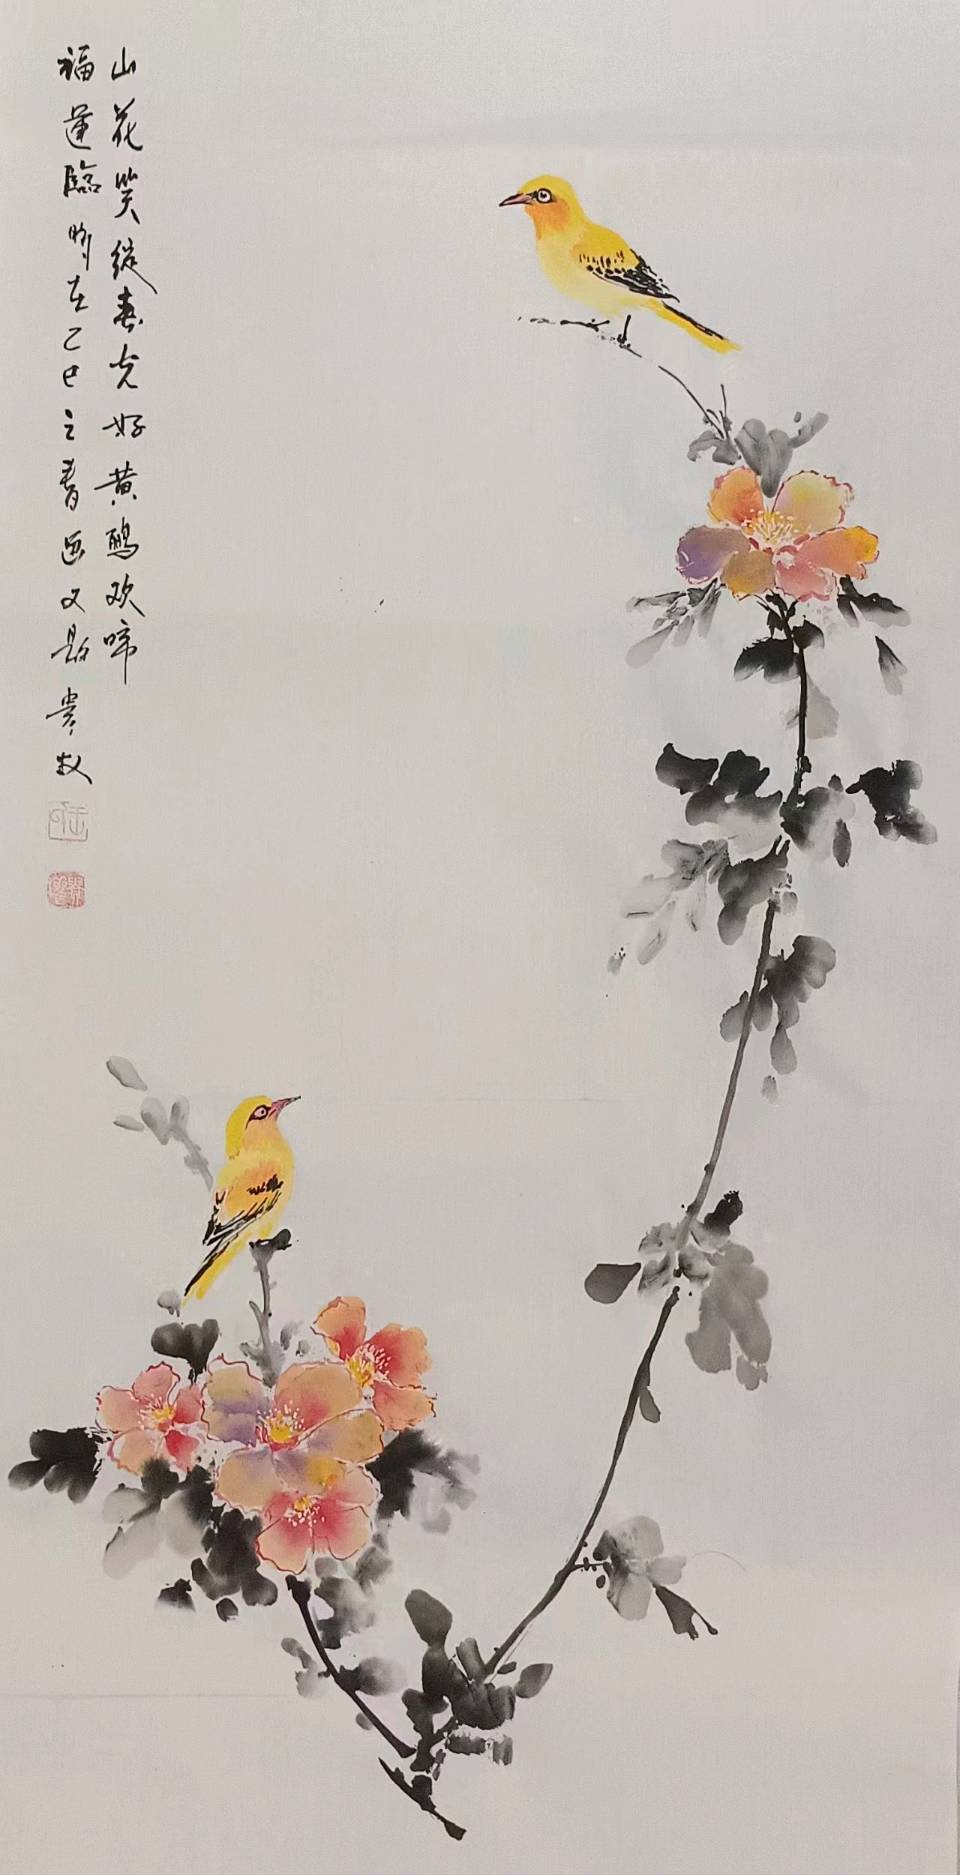 山花笑绽春光好黄鹂欢啼
福运临时在乙巳之春画又题贵权